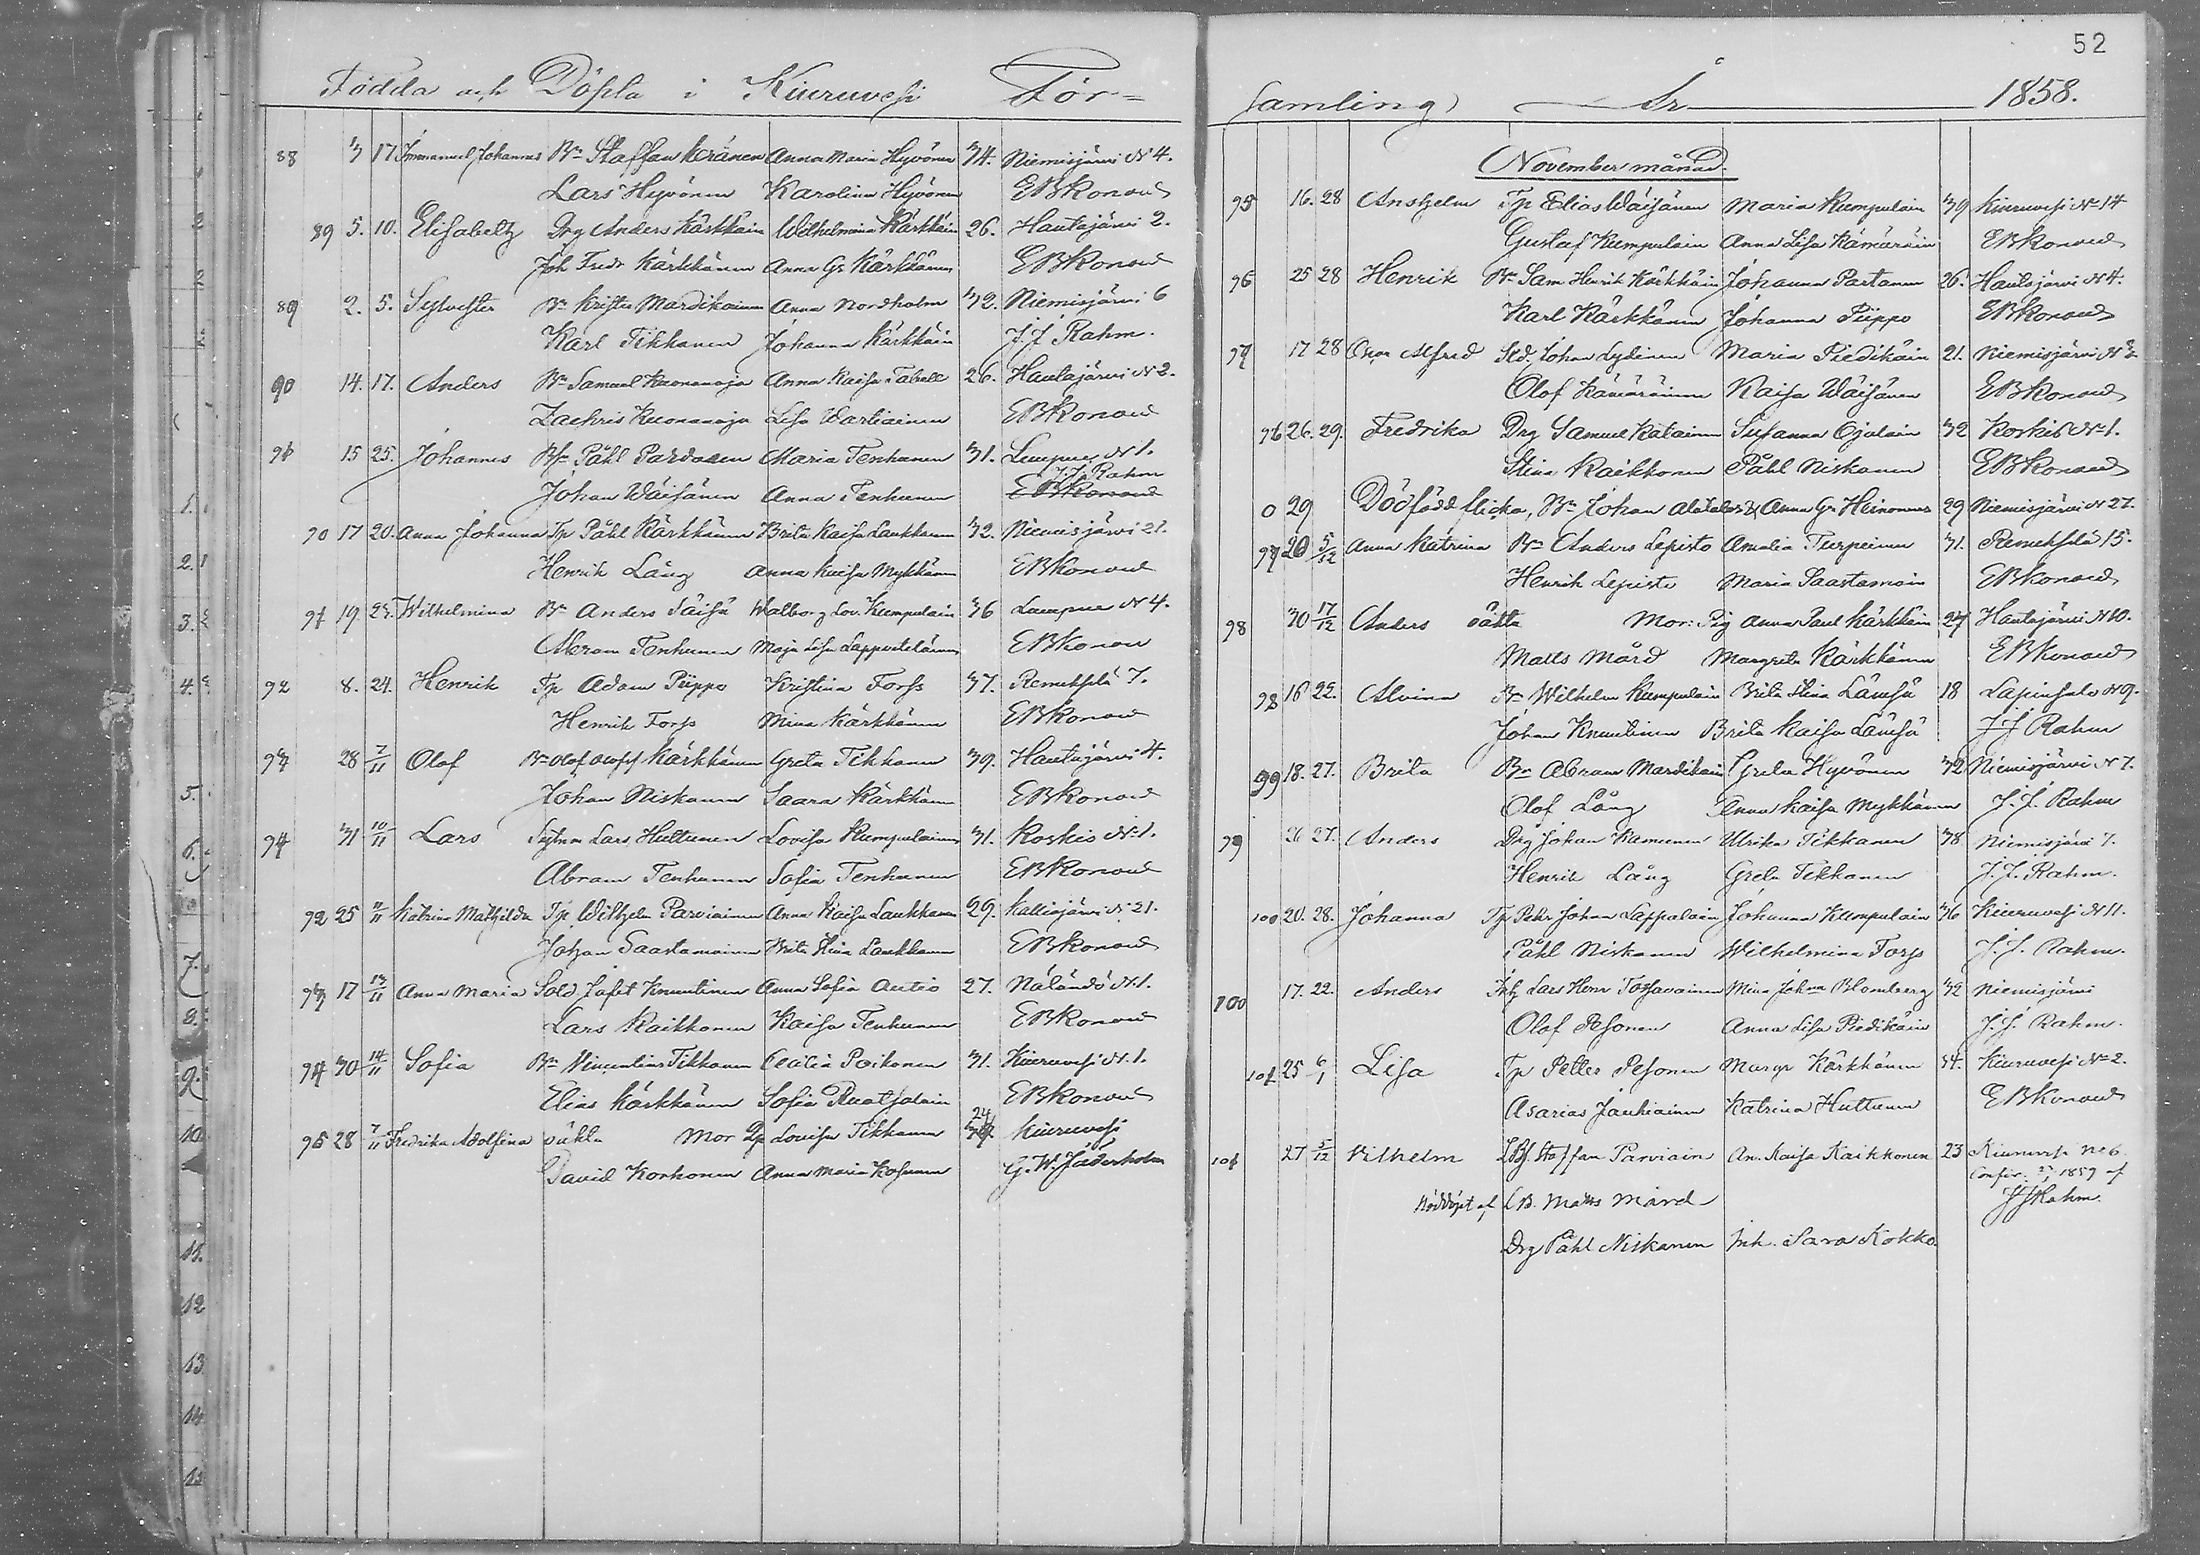 Födda och Döpta i Kiuruvesi För-
88 3 17 Immanuel Johannes Bn Staffan Keränen Anna Maria Hyvönen 34. Niemisjärvi N 4.
Lars Hyvönen Karolina Hyvönen EBKonow
89 5. 10. Elisabeth Drg Anders Kärkkäin Wilhelmina Kärkkäin 26. Hautajärvi 2.
Joh Fredr Kärkkänen Anna Gr Kärkkänen EBKonow
89 2. 5. Sylvester Bn Krister Mardikainen Anna Nordholm 32. Niemisjärvi 6
Karl Tikkanen Johanna Kärkkäin J.J. Rahm.
90 14. 17. Anders Bn Samuel Kuonanoja Anna Kaisa Tabell 26. Hautajärvi N 2.
Zachris Kuonanoja Lisa Wartiainen EBKonow
91 15 25. Johannes Påhl Maria Tenhunen 31. N 1.
J.J. Rahm
Johan Wäisänen Anna Tenhunen EBKonow
90 17 20. Anna Johanna Tp Påhl Kärkkänen Brita Kaisa Laukkanen 32. Niemisjärvi 21.
Henrik Lång Anna Kaisa Mykkänen EBKonow
91 19. 25. Wilhelmina Bn Anders Walborg Lov. Kumpulain 36 N 4.
Abram Tenhunen Maja Lisa EBKonow
92 8. 24. Henrik Tp Adam Piippo Kristina Forss 37. Remeskylä 7.
Henrik Forss Mina Kärkkänen EBKonow
93 28 7/11 Olof Bn Olof Olofss Kärkkänen Greta Tikkanen 39. Hautajärvi 4.
Johan Niskanen Saara Kärkkänen EBKonow
94 31 10/11 Lars Lars Huttunen Lovisa Kumpulainen 31. Koskis N:1.
Abram Tenhunen Sofia Tenhunen EBKonow
92 25 11/11 Katrina Mathilda Tp Wilhelm Parviainen Anna Kaisa Laukkanen 29. Kalliojärvi N 21.
Johan Saastamoinen Brita Stina Laukkanen EBKonow
93 17 13/11 Anna Maria Sold Jafet Knuutinen Anna Sofia Autio 27. Näläntö N:1.
Lars Kaikkonen Kaisa Tenhunen EBKonow
94 30 14/11 Sofia Bn Vincentius Tikkanen Cecilia Poikonen 31. Kiuruvesi N. 1.
Elias Kärkkänen Sofia Ruotsalain EBKonow
95 28 7/11 Fredrika Adolfina oäkta Mor Lovisa Tikkanen 24 Kiuruvesi
David Korhonen Anna Maria Kosunen G.W. Jäderholm
52
samling År 1858.
November månad.
95 16. 28 Anshelm Tp Elias Wäisänen Maria Kumpulain 39 Kiuruvesi N 14
Gustaf Kumpulain Anna Lisa Kämäräin EBKonow
96 25 28 Henrik Bn Sam Henrik Kärkkäin Johanna Partanen 26. Hautajärvi N 4.
Karl Kärkkänen Johanna Piippo EBKonow
97 17 28 Oscar Alfred Sld. Johan Lydinen Maria Tiedikäin 21. Niemisjärvi N
Olof Kämäräinen Kaisa Wäisänen EBKonow
96 26. 29. Fredrika Drg Samuel Katainen Susanna Ojalain 32 Koskis N:1.
Stina Kaikkonen Påhl Niskanen EBKonow
0 29 Dödfödd flicka, Bn Johan Alatalo & Anna Gr Heinonen 29 Niemisjärvi N 27.
97 20 5/12 Anna Katrina Bn Anders Lepistö Amalia Turpeinen 31. Remeskylä 15.
Henrik Lepistö Maria Saastamoin EBKonow
98 30 17/12 Anders oäkta Mor: Pig Anna Paul Kärkkäin 27 Hautajärvi N 10.
Matts Mård Margreta Kärkkänen EBKonow
98 16 22. Alvina Bn Wilhelm Kumpulain Brita Stina Länsä 18 Lapinsalo N 9.
Johan Knuutinen Brita Kaisa Länsä J.J. Rahm
99 18. 27. Brita Bn Abram Mardikain Greta Hyvönen 32 Niemisjärvi N 7.
Olof Lång Anna Kaisa Mykkänen J.J. Rahm
99 26 27. Anders Drg Johan Kamunen Ulrika Tikkanen 38 Niemisjärvi 7.
Henrik Lång Greta Tikkanen J.J. Rahm.
100 20. 28. Johanna Tp Pehr Johan Lappalain Johanna Kumpulain 36 Kiuruvesi N 11.
Påhl Niskanen Wilhelmina Forss J.J. Rahm.
100 17. 22. Anders Inh Lars Henr Torsavainen Mina Johna Blomberg 32 Niemisjärvi
Olof Pesonen Anna Lisa Piedikäin J.J. Rahm.
101 25 6/1 Lisa Tp Petter Pesonen Margr Kärkkänen 34. Kiuruvesi N 2.
Asarias Jauhiainen Katrina Huttunen EBKonow
101 27 5/12 Vilhelm LBf. Staffan Parviain An. Kaisa Kaikkonen 23 Kiuruvesi No 6
Confir. 1859 af
Nöddöpt af LB. Matts Mård JJRahm.
Drg Påhl Niskanen Inh. Sara Kokko.